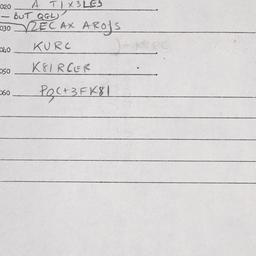 020 A T1X3LES
— BUT QGL)
030 √2ECAX AROJS
040 KURC
050 K81RCER
060 P2C+3FK81